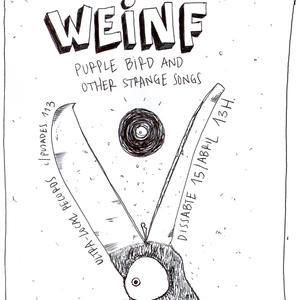 WEINF
PURPLE BIRD AND
OTHER STRANGE SONGS
ULTRA-LOCAL RECORDS C/PUJADES 113
DISSABTE 15/ABRIL 13H